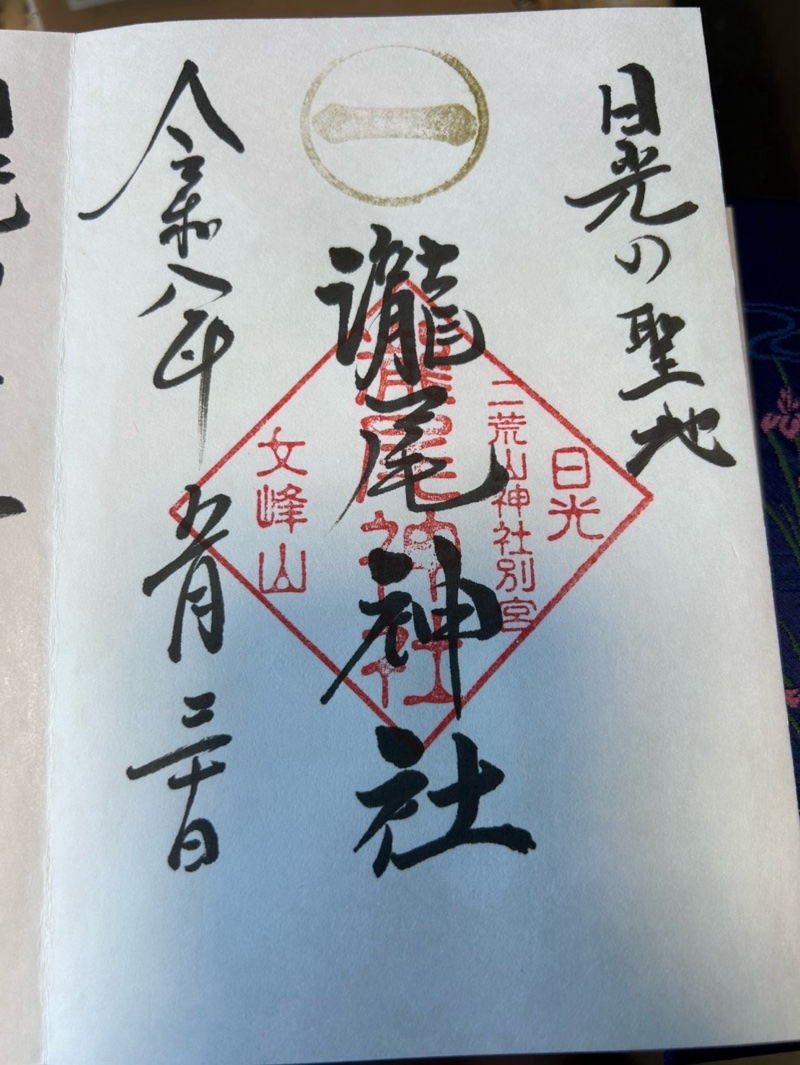 日光の聖地
一
瀧尾神社
令和八年 五月 三十日
日光
二荒山神社別宮
瀧尾神社
女峰山